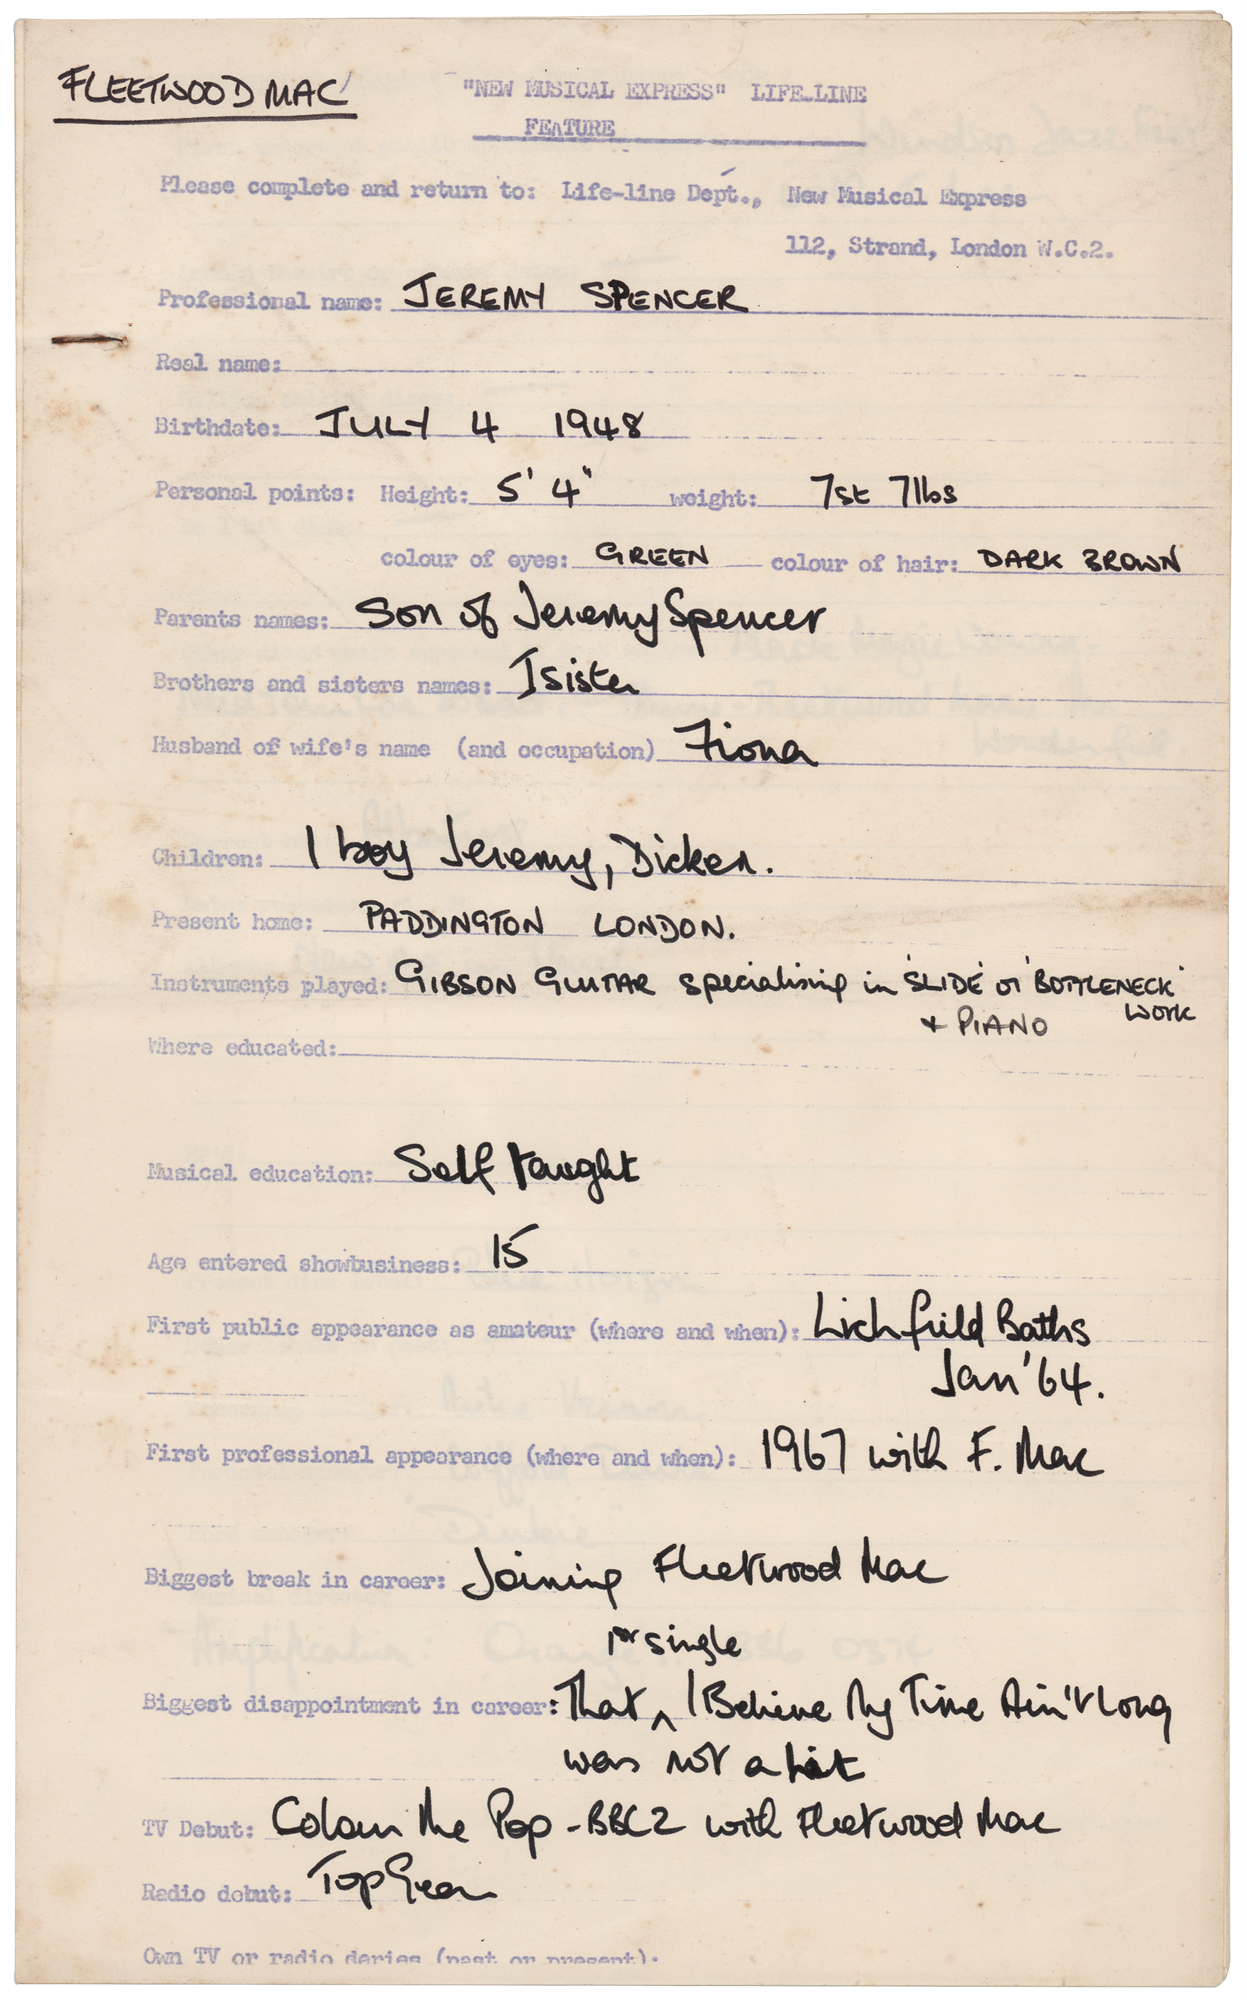 FLEETWOOD MAC
"NEW MUSICAL EXPRESS" LIFE-LINE
FEATURE
Please complete and return to: Life-line Dept., New Musical Express
112, Strand, London W.C.2.
Professional name: JEREMY SPENCER
Real name:
Birthdate: JULY 4 1948
Personal points: Height: 5' 4" weight: 7st 7lbs
colour of eyes: GREEN colour of hair: DARK BROWN
Parents names: Son of Jeremy Spencer
Brothers and sisters names: 1 sister
Husband of wife's name (and occupation) Fiona
Children: 1 boy Jeremy, Dicken.
Present home: PADDINGTON LONDON.
Instruments played: GIBSON GUITAR specialising in 'SLIDE' or 'BOTTLENECK'
WORK
+ PIANO
Where educated:
Musical education: Self taught
Age entered showbusiness: 15
First public appearance as amateur (where and when): Lichfield Baths
Jan '64.
First professional appearance (where and when): 1967 with F. Mac
Biggest break in career: Joining Fleetwood Mac
1st single
Biggest disappointment in career: That ^ I Believe My Time Ain't Long
was not a hit
TV Debut: Colour Me Pop - BBC2 with Fleetwood Mac
Radio debut: Top Gear
Own TV or radio deries (past or present):